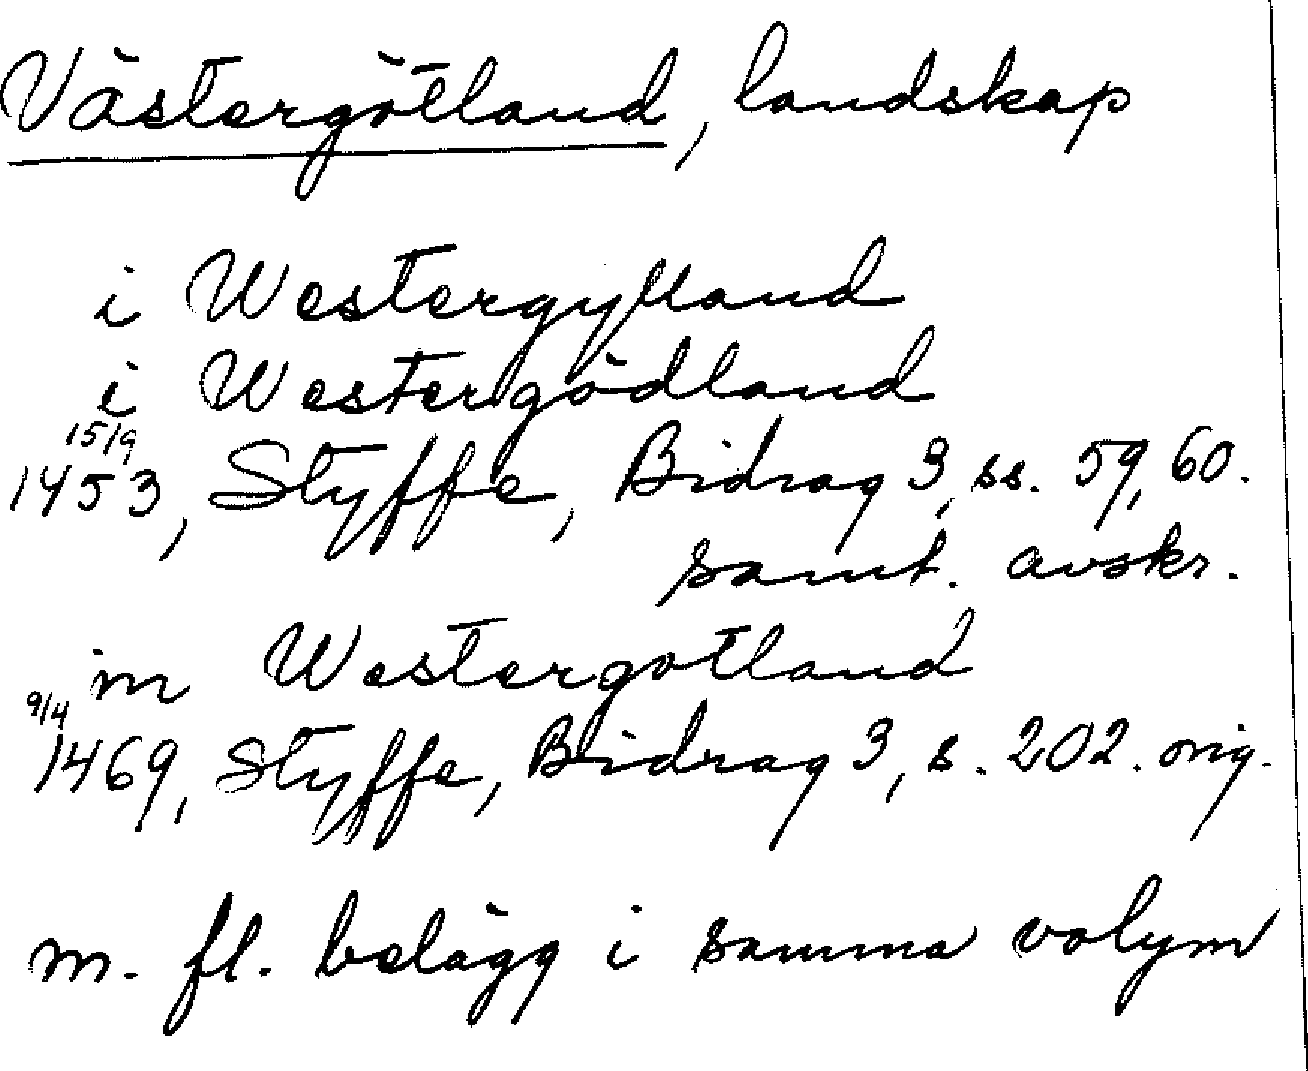 Västergötland, landskap
i Westergylland
i Westergödland
15/9
1453, Styffe, Bidrag 3, ss. 59, 60.
samt. avskr.
in Westergotland
9/4
1469, Styffe, Bidrag 3, s. 202. orig.
m. fl. belägg i samma volym